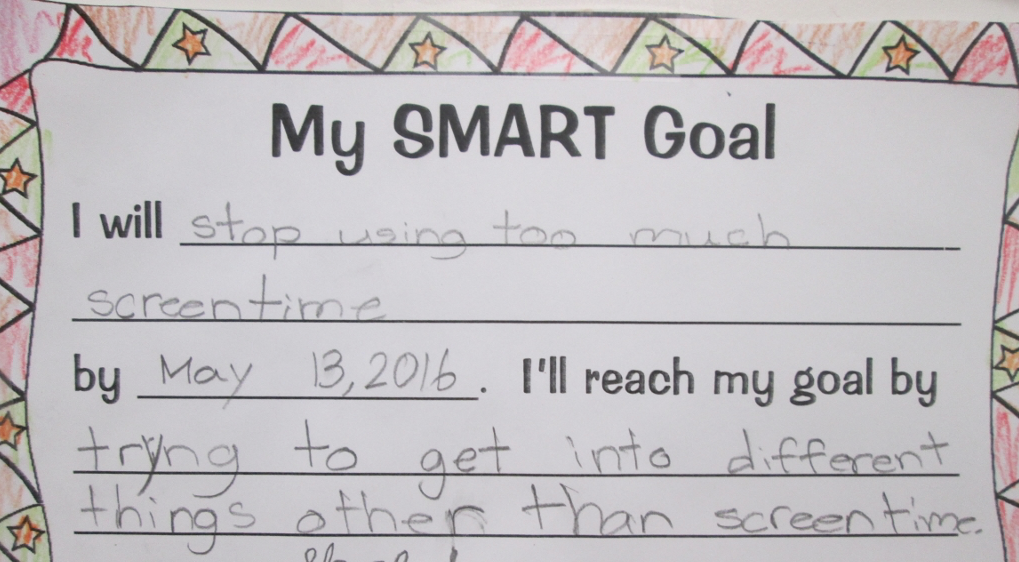 My SMART Goal
I will stop using too much
screentime
by May 13, 2016. I'll reach my goal by
tryng to get into different
things other than screentime.